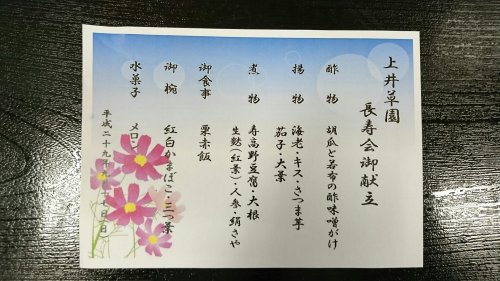 上井草園
長寿会御献立
酢物 胡瓜と若布の酢味噌がけ
揚物 海老・キス・さつま芋
茄子・大葉
煮物 寿高野豆腐・大根
生麩(紅葉)・人参・絹さや
御食事 栗赤飯
御椀 紅白かまぼこ・三つ葉
水菓子 メロン
平成二十九年